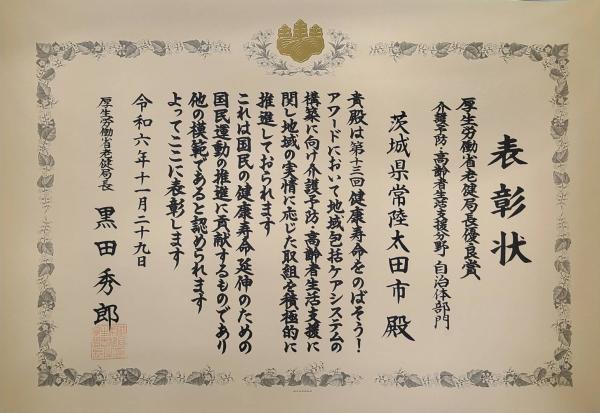 表彰状
厚生労働省老健局長優良賞
介護予防・高齢者生活支援分野 自治体部門
茨城県常陸太田市 殿
貴殿は第十三回健康寿命をのばそう!
アワードにおいて地域包括ケアシステムの
構築に向け介護予防・高齢者生活支援に
関し地域の実情に応じた取組を積極的に
推進しておられます
これは国民の健康寿命延伸のための
国民運動の推進に貢献するものであり
他の模範であると認められます
よってここに表彰します
令和六年十一月二十九日
厚生労働省老健局長 黒田秀郎